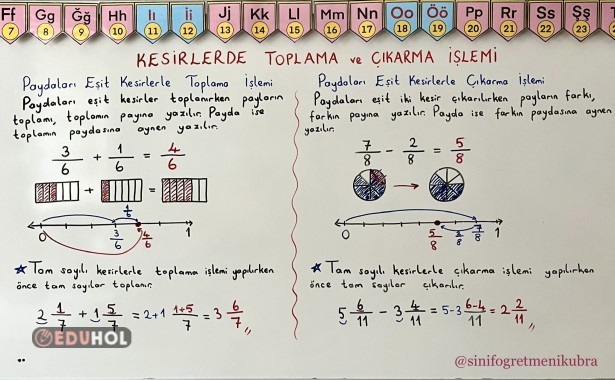 Ff Gg Ğğ Hh Iı İi Jj Kk Ll Mm Nn Oo Öö Pp Rr Ss Şş
7 8 9 10 11 12 13 14 15 16 17 18 19 20 21 22 23
KESİRLERDE TOPLAMA ve ÇIKARMA İŞLEMİ
Paydaları Eşit Kesirlerle Toplama İşlemi
Paydaları eşit kesirler toplanırken payların
toplamı, toplamın payına yazılır. Payda ise
toplamın paydasına aynen yazılır.
3/6 + 1/6 = 4/6
+ =
1/6
0 3/6 4/6 1
★ Tam sayılı kesirlerle toplama işlemi yapılırken
önce tam sayılar toplanır.
2 1/7 + 1 5/7 = 2+1 1+5/7 = 3 6/7
EDUHOL
Paydaları Eşit Kesirlerle Çıkarma İşlemi
Paydaları eşit iki kesir çıkarılırken payların farkı,
farkın payına yazılır. Payda ise farkın paydasına aynen
yazılır.
7/8 - 2/8 = 5/8
0 5/8 2/8 7/8 1
★ Tam sayılı kesirlerle çıkarma işlemi yapılırken
önce tam sayılar çıkarılır.
5 6/11 - 3 4/11 = 5-3 6-4/11 = 2 2/11
@sinifogretmenikubra